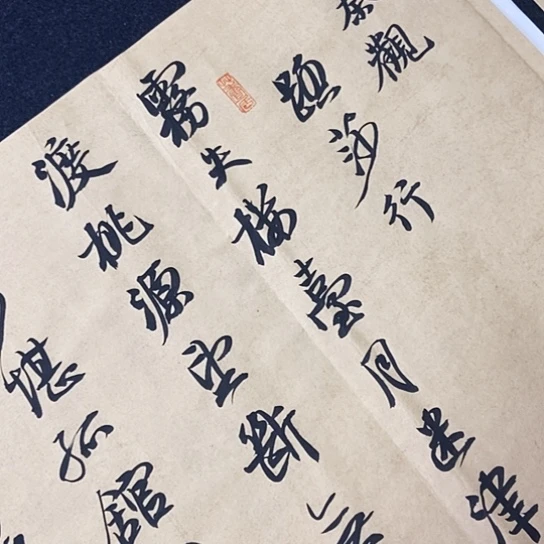 觀
踏莎行
霧失樓臺月迷津
渡桃源望斷
堪孤館